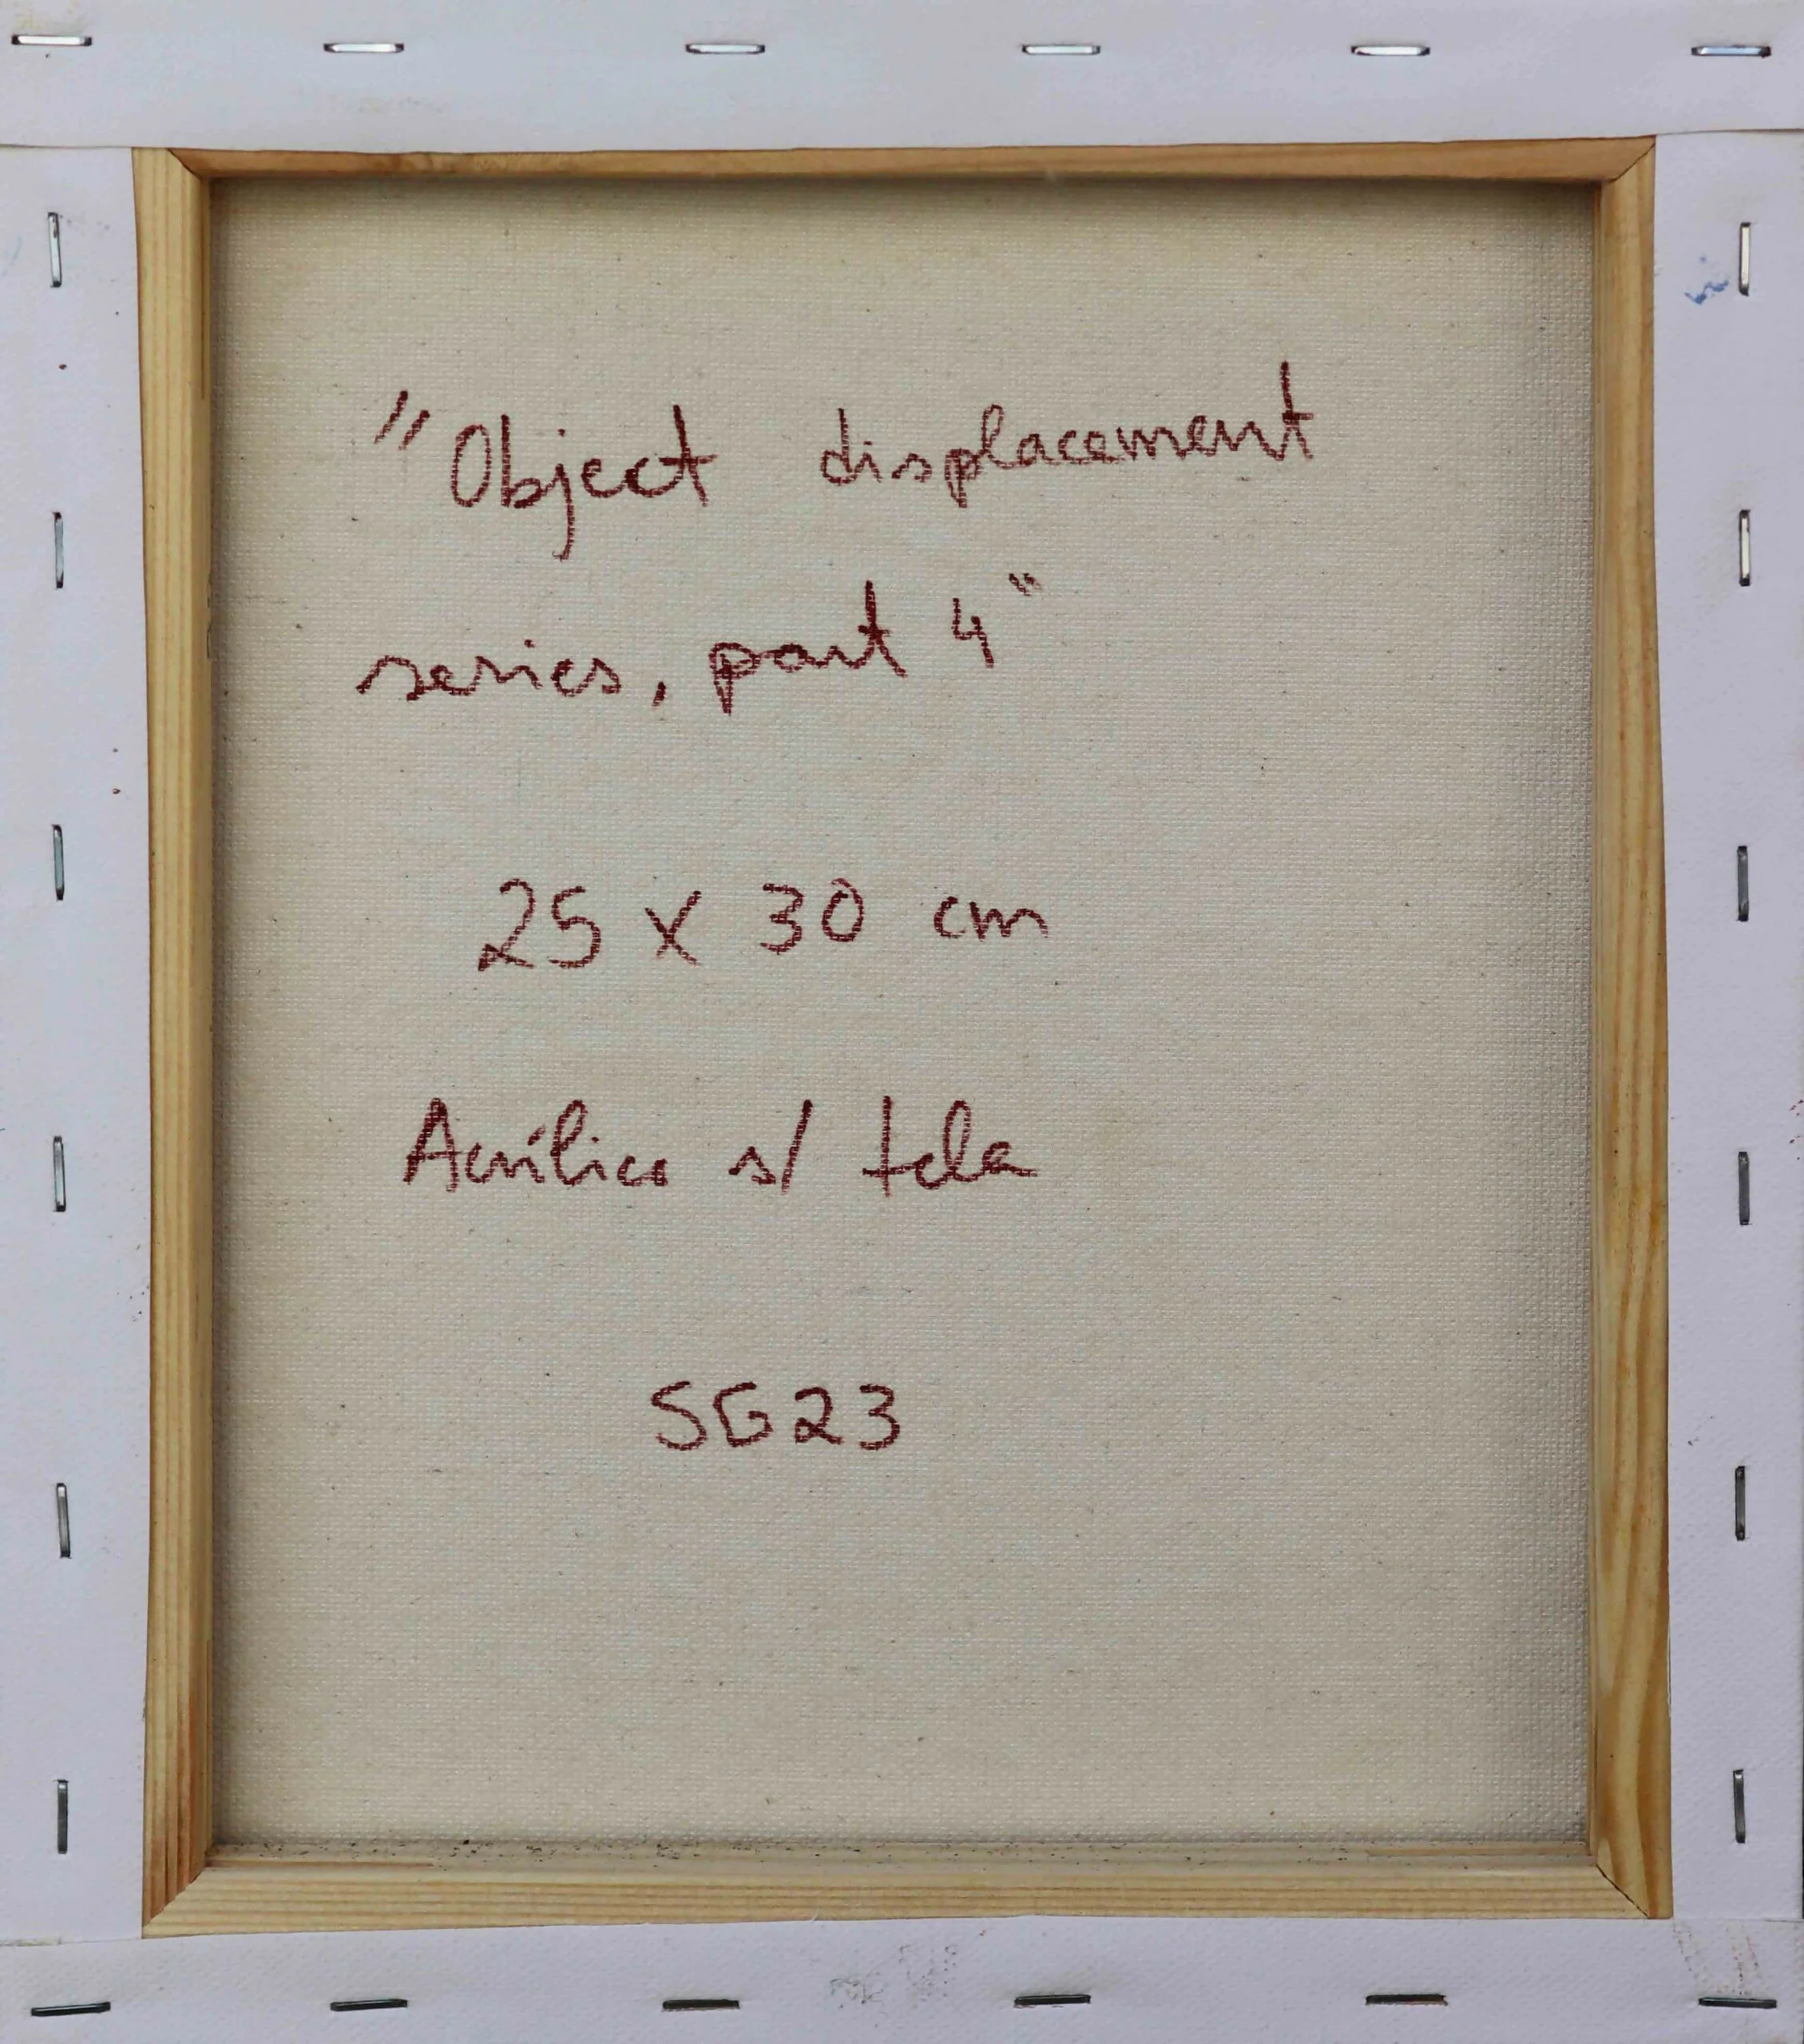 "Object displacement
series, part 4"
25 x 30 cm
Acrílico s/ tela
SG23